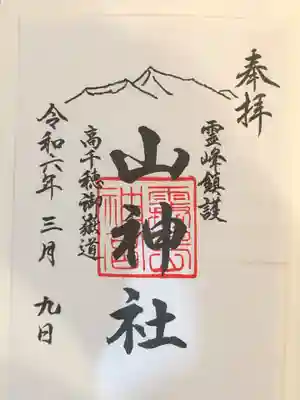 奉拝
霊峰鎮護
山神社
高千穂御嶽道
令和六年 三月 九日